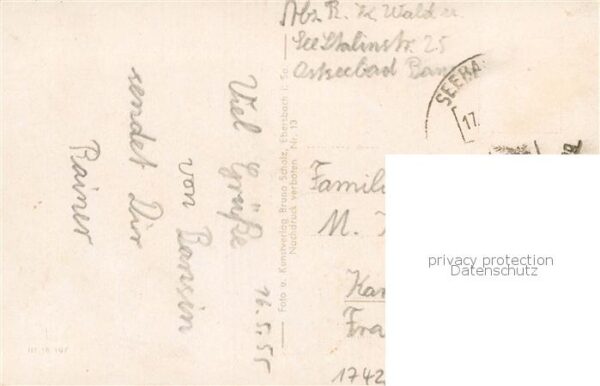 Viel Grüße
von Bansin
sendet Dir
Rainer
16.5.55
III 18 197
Foto u. Kunstverlag Bruno Scholz, Ebersbach i. Sa.
Nachdruck verboten Nr. 13
Abs. R. K. Walder
Stalinstr. 25
Ostseebad Ban
SEEBA
17.
Famili
M.
Kar
Fra
1742
privacy protection
Datenschutz